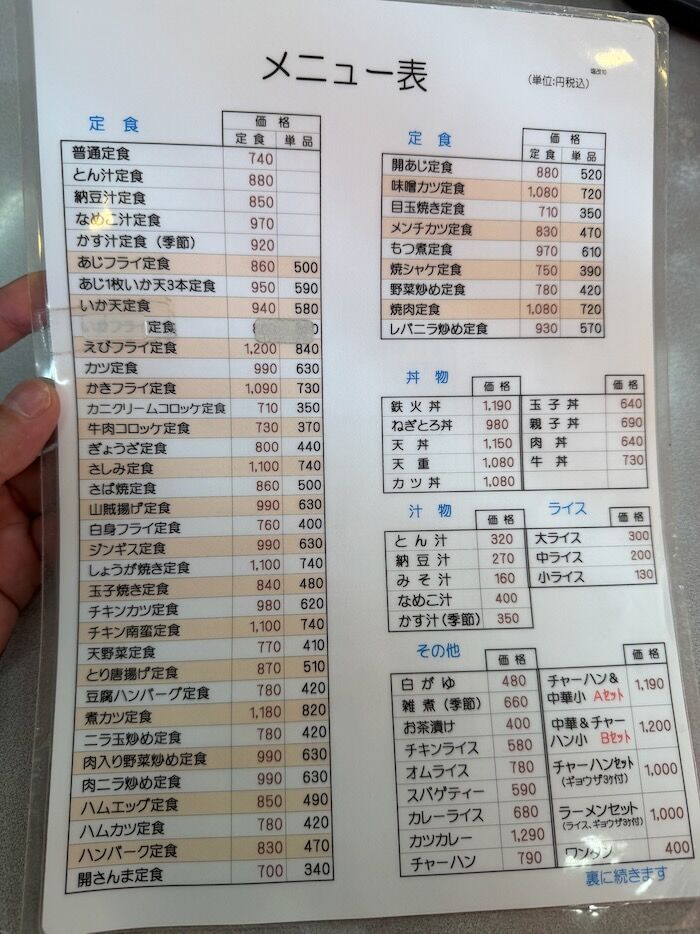 メニュー表
(単位:円税込)
定食
価格
定食 単品
普通定食 740
とん汁定食 880
納豆汁定食 850
なめこ汁定食 970
かす汁定食(季節) 920
あじフライ定食 860 500
あじ1枚いか天3本定食 950 590
いか天定食 940 580
定食
えびフライ定食 1,200 840
カツ定食 990 630
かきフライ定食 1,090 730
カニクリームコロッケ定食 710 350
牛肉コロッケ定食 730 370
ぎょうざ定食 800 440
さしみ定食 1,100 740
さば焼定食 860 500
山賊揚げ定食 990 630
白身フライ定食 760 400
ジンギス定食 990 630
しょうが焼き定食 1,100 740
玉子焼き定食 840 480
チキンカツ定食 980 620
チキン南蛮定食 1,100 740
天野菜定食 770 410
とり唐揚げ定食 870 510
豆腐ハンバーグ定食 780 420
煮カツ定食 1,180 820
ニラ玉炒め定食 780 420
肉入り野菜炒め定食 990 630
肉ニラ炒め定食 990 630
ハムエッグ定食 850 490
ハムカツ定食 780 420
ハンバーク定食 830 470
開さんま定食 700 340
定食
価格
定食 単品
開あじ定食 880 520
味噌カツ定食 1,080 720
目玉焼き定食 710 350
メンチカツ定食 830 470
もつ煮定食 970 610
焼シャケ定食 750 390
野菜炒め定食 780 420
焼肉定食 1,080 720
レバニラ炒め定食 930 570
丼物
価格
鉄火丼 1,190
ねぎとろ丼 980
天丼 1,150
天重 1,080
カツ丼 1,080
価格
玉子丼 640
親子丼 690
肉丼 640
牛丼 730
汁物
価格
とん汁 320
納豆汁 270
みそ汁 160
なめこ汁 400
かす汁(季節) 350
ライス
価格
大ライス 300
中ライス 200
小ライス 130
その他
価格
白がゆ 480
雑煮(季節) 660
お茶漬け 400
チキンライス 580
オムライス 780
スパゲティー 590
カレーライス 680
カツカレー 1,290
チャーハン 790
価格
チャーハン&
中華小 Aセット 1,190
中華&チャー
ハン小 Bセット 1,200
チャーハンセット
(ギョウザ3ケ付) 1,000
ラーメンセット
(ライス、ギョウザ3ケ付) 1,000
ワンタン 400
裏に続きます